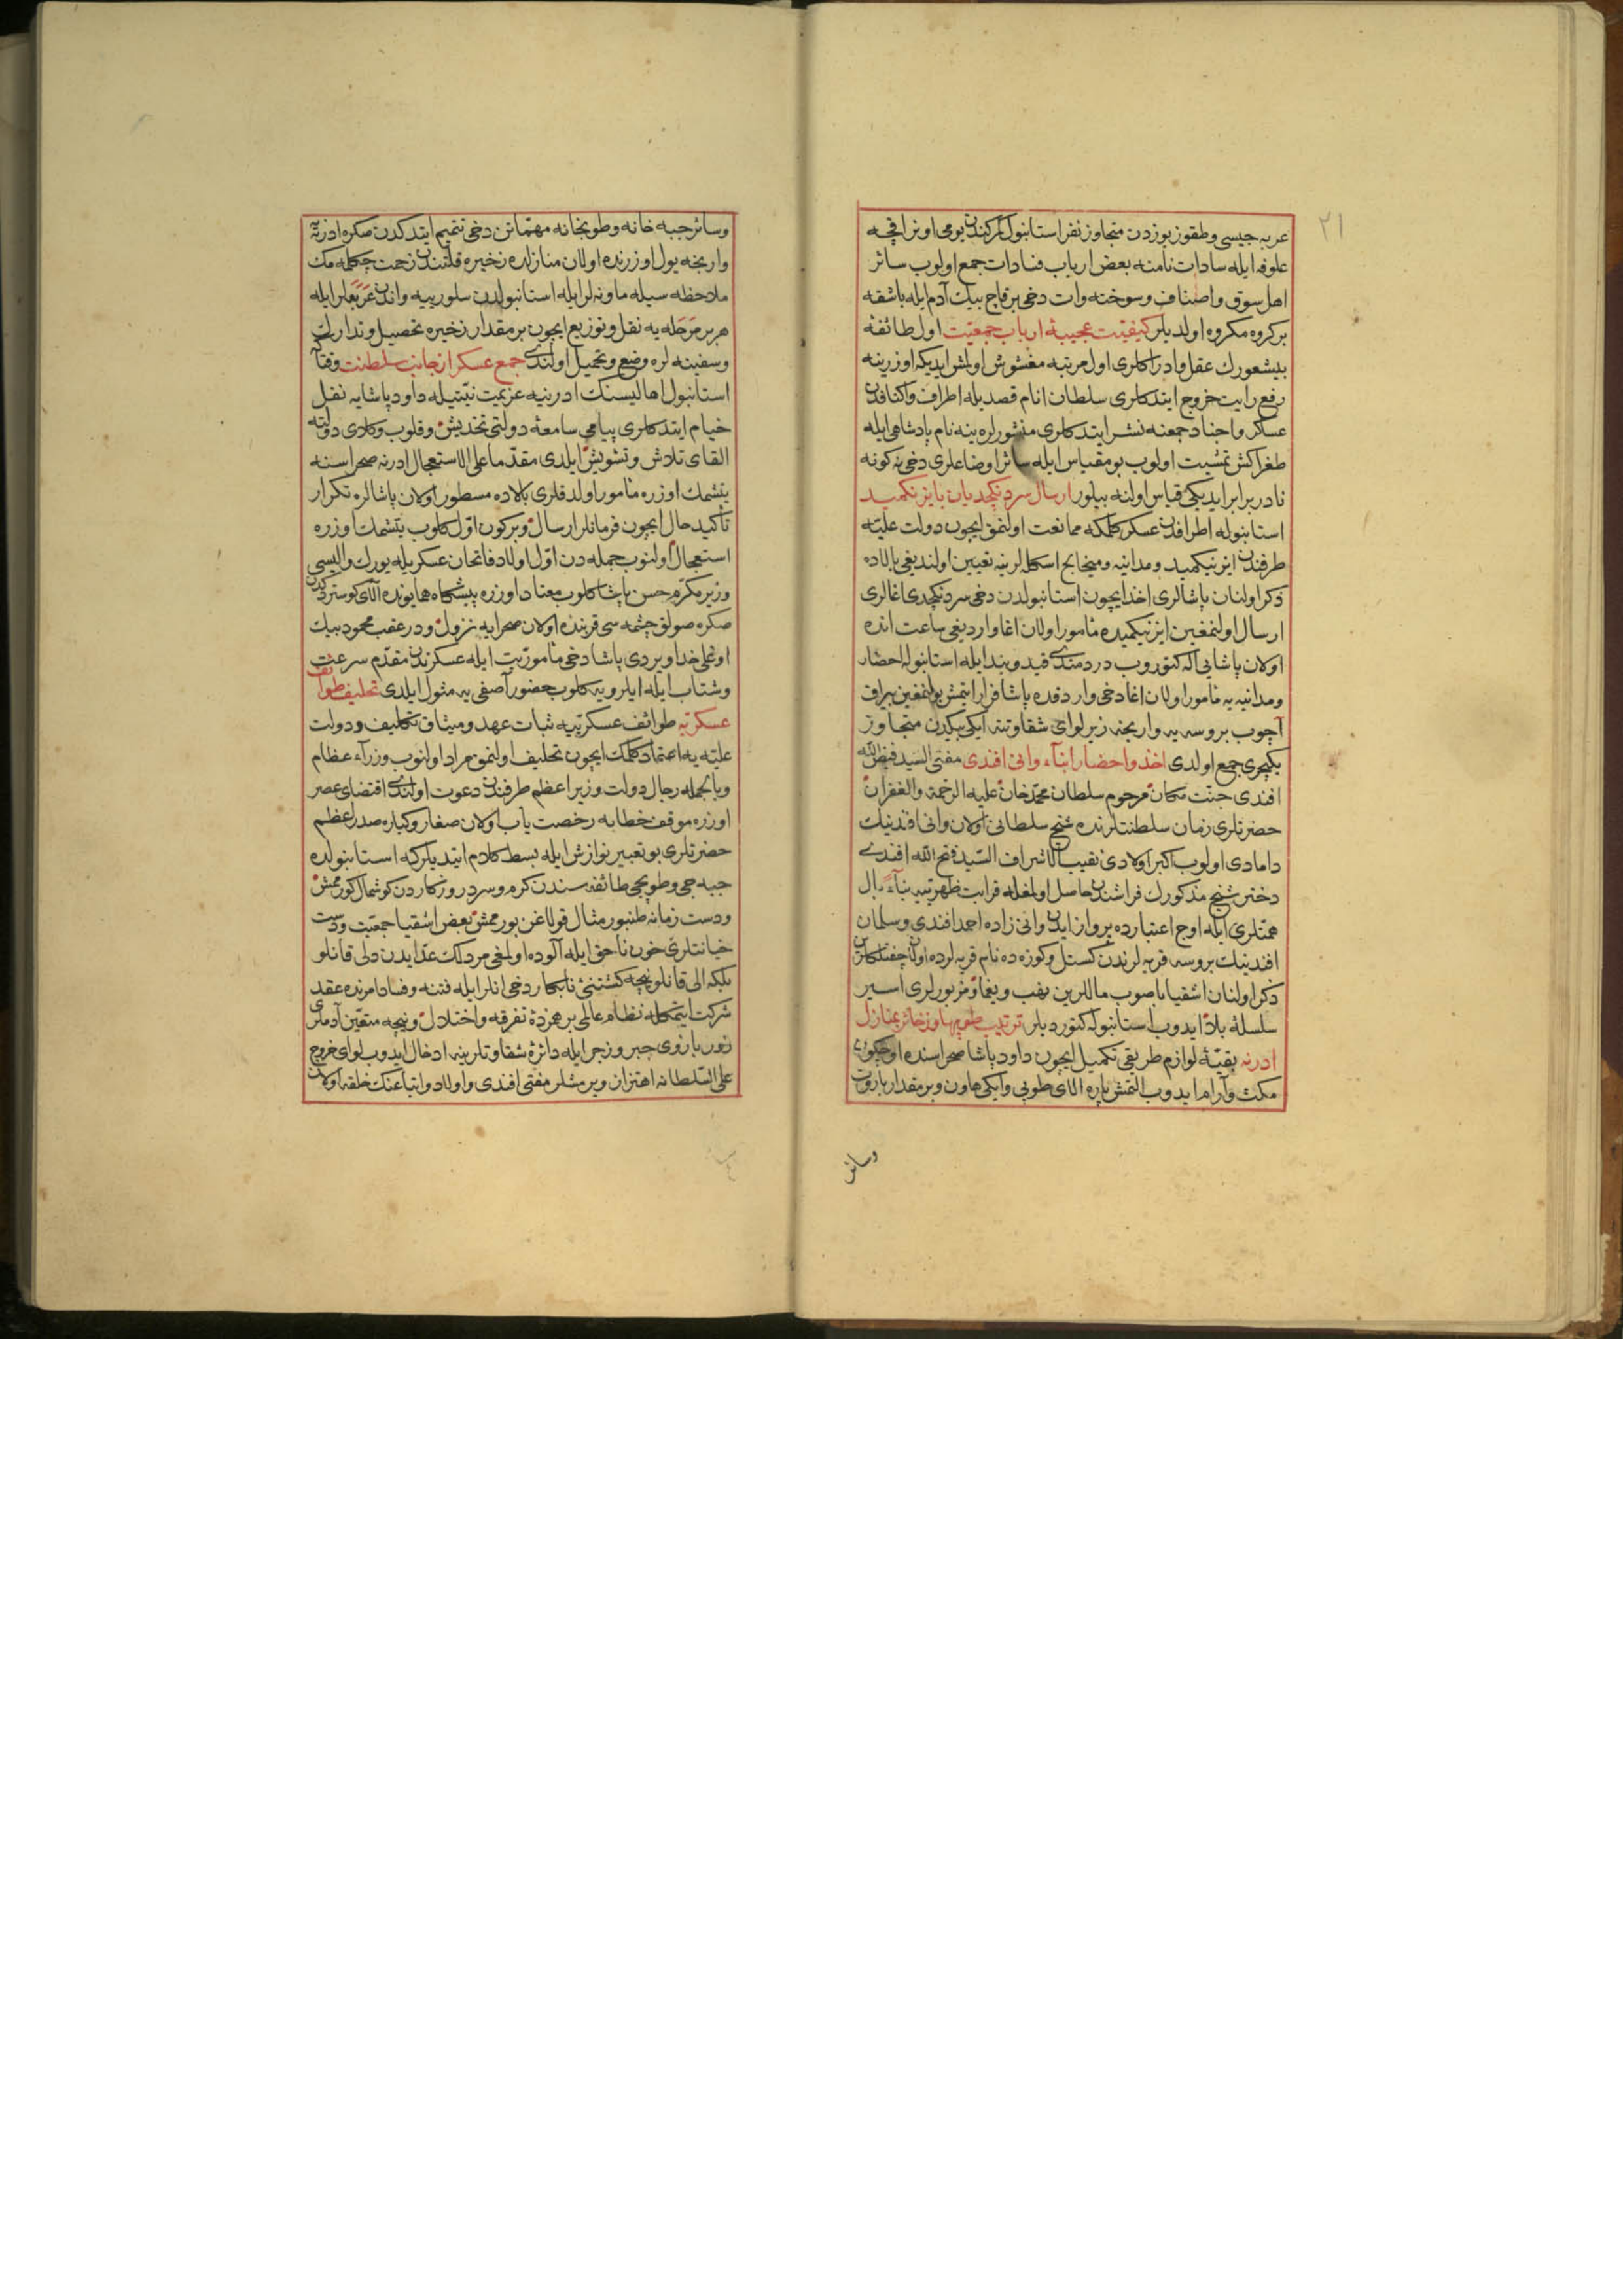 ٢١
عربه جیسی وطقوز یوزدن متجاوز نفر استانبول کومرکندن یومی اونر اقچه
علوفه ایله سادات نامنه بعض ارباب فسادات جمع اولوب سائر
اهل سوق واصناف وسوخته وات دخی برقاچ بیك آدم ایله باشقه
برکروه مکروه اولدیلر کیفیت عجیبهٔ ارباب جمعیت اول طائفهٔ
بیشعورك عقل وادراکلری اول مرتبه مغشوش اولمش ایدیکه اوزرینه
رفع رایت خروج ایتدکلری سلطان انام قصدیله اطراف واکنافدن
عسکر واجناد جمعنه نشر ایتدکلری منشورلره ینه نام پادشاهی ایله
طغراکش تمشیت اولوب بو مقیاس ایله سائر اوضاعلری دخی نه کونه
نادر برابر ایدیکی قیاس اولنه بیلور ارسال سردنکچدیان بایزنکمید
استانبوله اطرافدن عسکر کلمکه ممانعت اولنمق ایچون دولت علیه
طرفندن ایزنیکمید ومدانیه ومیخالیج اسکله لرینه تعیین اولندیغی بالاده
ذکر اولنان پاشالری اخذ ایچون استانبولدن دخی سردنکچدی اغالری
ارسال اولنمغین ایزنیکمیده مأمور اولان اغا واردیغی ساعت انده
اولان پاشایی اله کتوروب دردمندی قید وبند ایله استانبوله احضار
ومدانیه یه مأمور اولان اغا دخی واردقده پاشا فرار ایتمش بولنمغین بیراق
آچوب بروسه یه وارنجه زیر لوای شقاوتنه ایکی بیکدن متجاوز
یکیچری جمع اولدی اخذ واحضار ابنآء وانی افندی مفتی السید فیض الله
افندی جنت مکان مرحوم سلطان محمد خان علیه الرحمة والغفران
حضرتلری زمان سلطنتلرنده شیخ سلطانی اولان وانی افندینك
دامادی اولوب اکبر اولادی نقیب الاشراف السید فتح الله افندی
دختر شیخ مذکورك فراشندن حاصل اولمغله قرابت ظهریه بنآء بال
همتلری ایله اوج اعتبارده پرواز ایدن وانی زاده احمد افندی وسلمان
افندینك بروسه قریه لرندن کستل وکوزه ده نام قریه لرده اولان چفتلکلرین
ذکر اولنان اشقیا باصوب ماللرین نهب ویغما ومزبورلری اسیر
سلسلهٔ بلا ایدوب استانبوله کتوردیلر ترتیب طوپها وذخائر بمنازل
ادرنه بقیهٔ لوازم طریقی تکمیل ایچون داود پاشا صحراسنده اوچ کون
مکث وآرام ایدوب التمش پاره الای طوپی وایکی هاون وبر مقدار باروت
وسائر
وسائر جبه خانه وطوپخانه مهماتن دخی تتمیم ایتدکدن صکره ادرنه یه
وارنجه یول اوزرنده اولان منازلده ذخیره قلتندن زحمت چکلمه مك
ملاحظه سیله ماونه لر ایله استانبولدن سلوریه یه واندن عربه لر ایله
هر بر مرحله یه نقل وتوزیع ایچون بر مقدار ذخیره تحصیل وتدارك
وسفینه لره وضع وتحمیل اولندی جمع عسکر از جانب سلطنت وقتاکه
استانبول اهالیسنك ادرنه یه عزیمت نیتیله داود پاشایه نقل
خیام ایتدکلری پیامی سامعهٔ دولتی تخدیش وقلوب وکلای دولته
القای تلاش وتشویش ایلدی مقدما علی الاستعجال ادرنه صحراسنه
یتشمك اوزره مأمور اولدقلری بالاده مسطور اولان پاشالره تکرار
تأکید حال ایچون فرمانلر ارسال وبرکون اول کلوب یتشمك اوزره
استعجال اولنوب جمله دن اول اولاد فاتحان عسکریله یورك والیسی
وزیر مکرم حسن پاشا کلوب معتاد اوزره پیشکاه همایونده الای کوستردکدن
صکره صولق چشمه سی قربنده اولان صحرایه نزول ودرعقب محمود بیك
اوغلی خداویردی پاشا دخی مأموریت ایله عسکرندن مقدم سرعت
وشتاب ایله ایلرویه کلوب حضور آصفی یه مثول ایلدی تحلیف طوائف
عسکریه طوائف عسکریه یه ثبات عهد ومیثاق تکلیف ودولت
علیه یه اعتماد کلمك ایچون تحلیف اولنمق مراد اولنوب وزرآء عظام
وبالجمله رجال دولت وزیر اعظم طرفندن دعوت اولندی اقتضای عصر
اوزره موقف خطابه رخصت یاب اولان صغار وکباره صدر اعظم
حضرتلری بو تعبیر نوازش ایله بسط کلام ایتدیلرکه استانبولده
جبه جی وطوپجی طائفه سندن کرم وسرد روزکاردن کوشمال کورممش
ودست زمانه طنبور مثال قولاغن بورممش بعض اشقیا جمعیت ودست
خیانتلری خون ناحق ایله آلوده اولمغی مردلك عد ایدن دلی قانلو
بلکه الی قانلو نیچه کشتنئ نابکار دخی انلر ایله فتنه وفسادامرنده عقد
شرکت ایتمکله نظام عالمی برهمزدهٔ تفرقه واختلال ونیچه متقین آدملری
زور بازوی جبر وزجر ایله دائرهٔ شقاوتلرینه ادخال ایدوب لوای خروج
علی السلطانه اهتزاز ویرمشلر مفتی افندی واولاد واتباعنك خلقه اولان